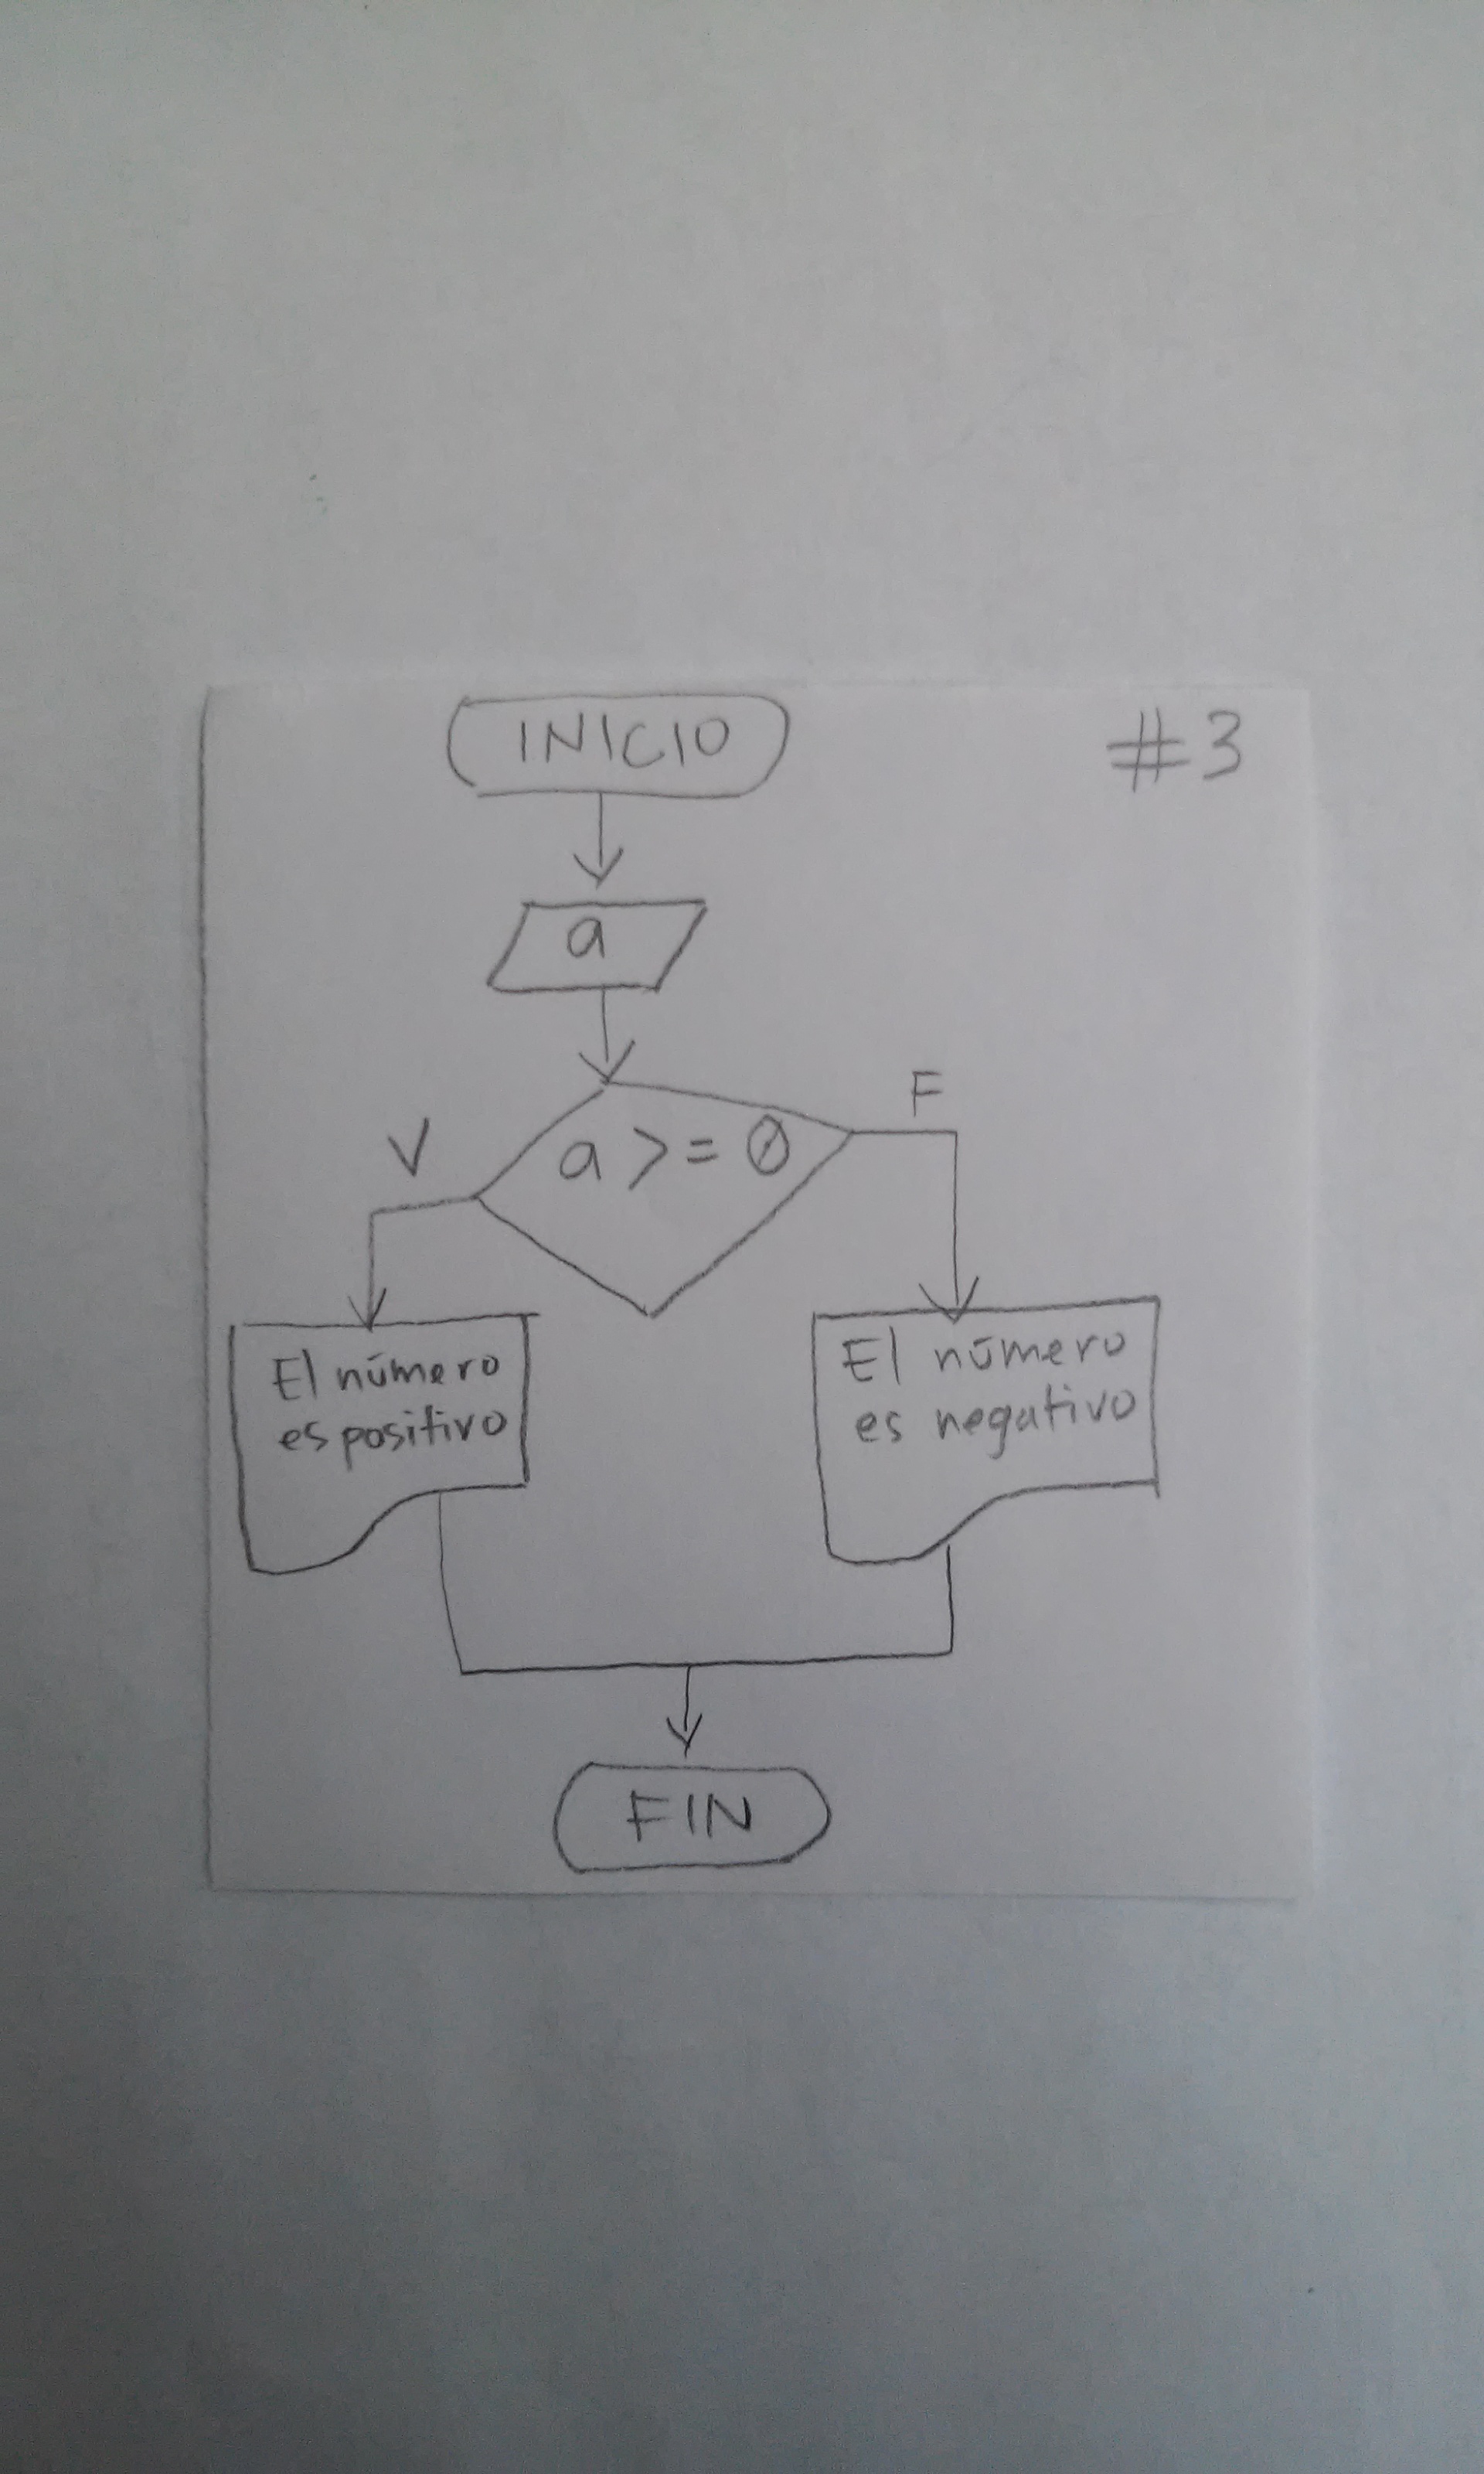 INICIO
#3
a
a >= 0
V
F
El número
es positivo
El número
es negativo
FIN